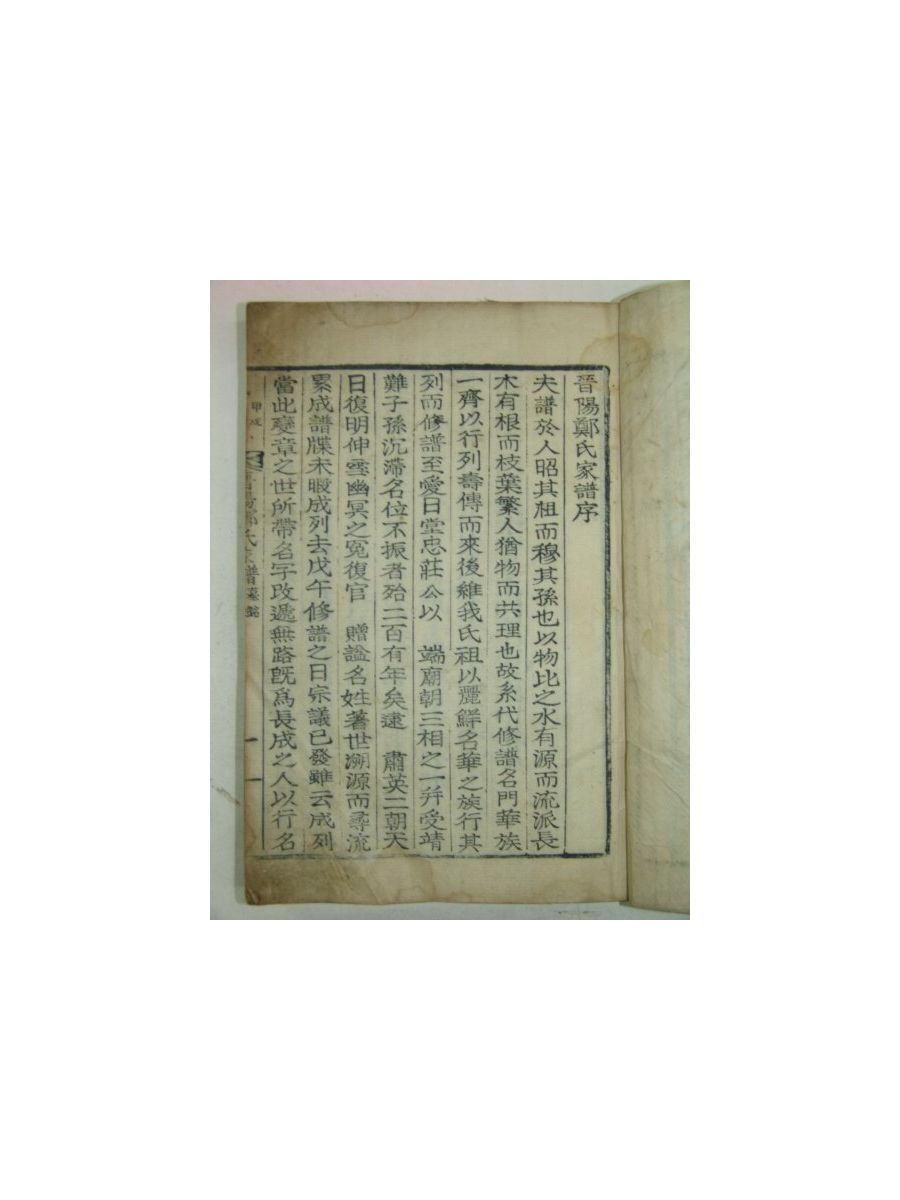 晉陽鄭氏家譜序
夫譜於人昭其祖而穆其孫也以物比之水有源而流派長
木有根而枝葉繁人猶物而共理也故系代修譜名門華族
一齊以行列壽傳而來後維我氏祖以麗鮮名華之族行其
列而修譜至愛日堂忠莊公以 端廟朝三相之一幷受靖
難子孫沉滯名位不振者殆二百有年矣逮 肅英二朝天
日復明伸雪幽冥之冤復官 贈諡名姓著世溯源而尋流
累成譜牒未暇成列去戊午修譜之日宗議已發雖云成列
當此變章之世所帶名字改遞無路旣爲長成之人以行名
氏 譜
一